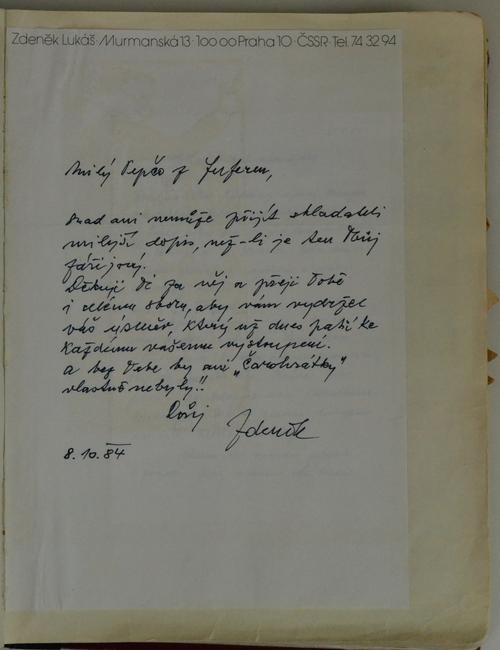 Zdeněk Lukáš · Murmanská 13 · 100 00 Praha 10 · ČSSR · Tel. 74 32 94
Milý Pepčo z
snad ani nemůže přijít skladateli
milejší dopis, než-li je ten Tvůj
zářijový.
Děkuji Ti za něj a přeji Tobě
i celému sboru, aby vám vydržel
váš úsměv, který už dnes patří ke
každému vašemu vystoupení.
a bez Tebe by ani „Čarohrátky"
vlastně nebyly!!
Tvůj
Zdeněk
8. 10. 84